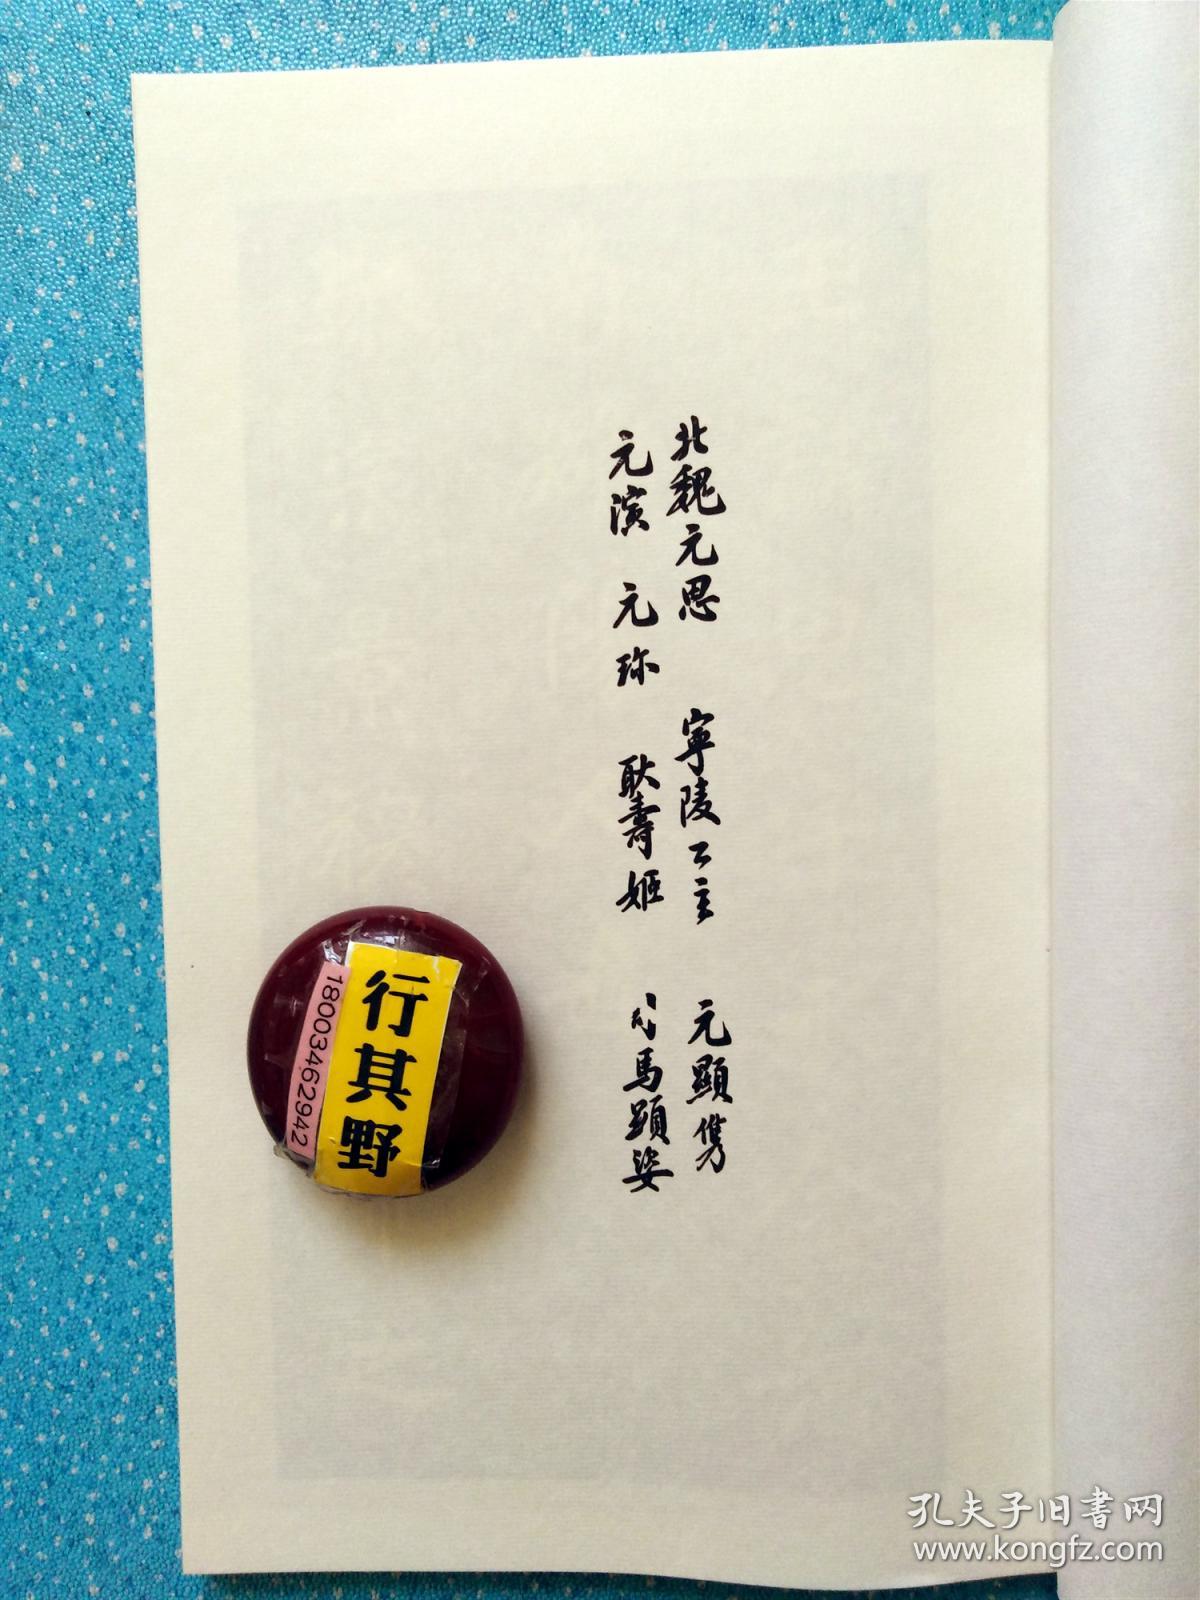 北魏元思 寧陵公主 元顯儁
元演 元珎 耿壽姬 司馬顯姿
行其野
18003462942
孔夫子旧書网
www.kongfz.com